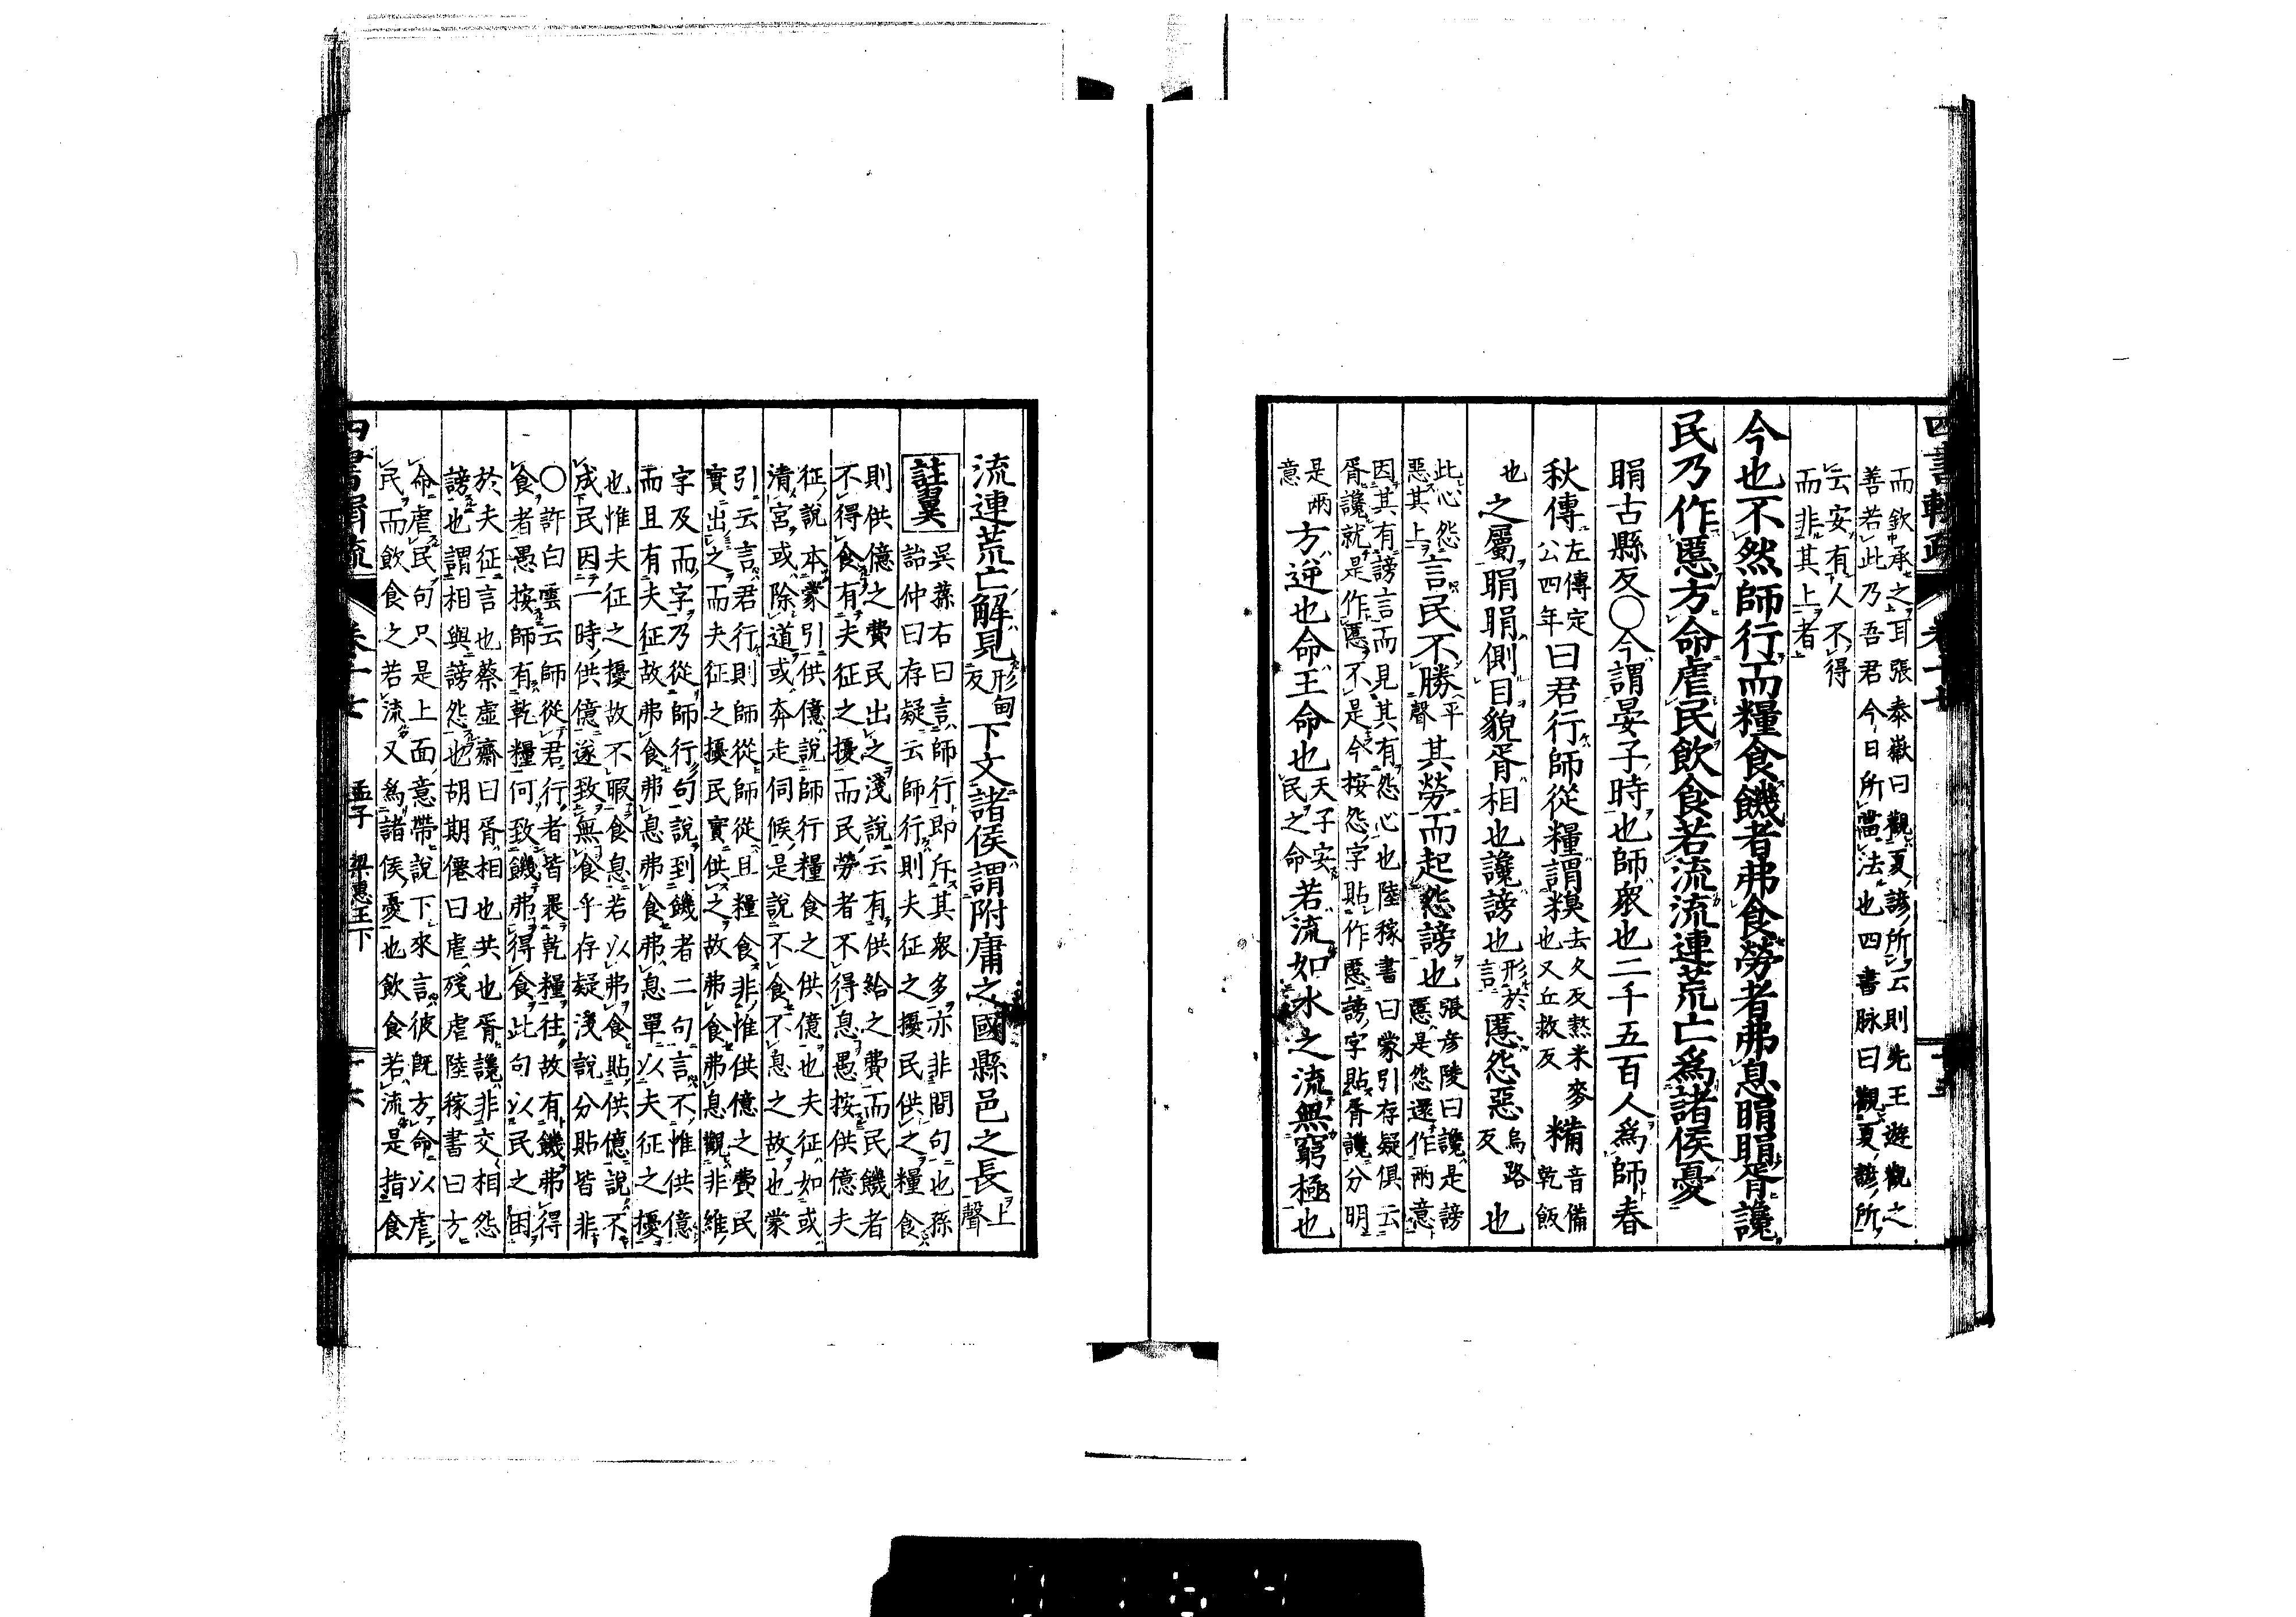 而欽承之耳張泰嶽曰觀夏諺所云則先王遊觀之
善若此乃吾君今日所當法也四書脉曰觀夏諺所
云安有人不得
而非其上者
今也不然師行而糧食饑者弗食勞者弗息睊睊胥讒
民乃作慝方命虐民飲食若流流連荒亡為諸侯憂
睊古縣反○今謂晏子時也師衆也二千五百人為師春
秋傳左傳定公四年曰君行師從糧謂糗去久反熬米麥也又丘救反糒音備乾飯
也之屬睊睊側目貌胥相也讒謗也形於言慝怨惡烏路反也
此心怨惡其上言民不勝平聲其勞而起怨謗也張彦陵曰讒是謗慝是怨還作兩意
因其有謗言而見其有怨心也陸稼書曰蒙引存疑俱云
胥讒就是作慝不是今按怨字貼作慝謗字貼胥讒分明
是兩意方逆也命王命也天子安民之命若流如水之流無窮極也
流連荒亡解見形甸反下文諸侯謂附庸之國縣邑之長上聲
註翼
吳蓀右曰言師行即斥其衆多亦非閒句也孫
詒仲曰存疑云師行則夫征之擾民供之糧食
則供億之費民出之淺說云有供給之費而民饑者
不得食有夫征之擾而民勞者不得息愚按供億夫
征說本蒙引供億說師行糧食之供億也夫征如或
清宮或除道或奔走伺候是說不食不息之故也蒙
引云言君行則師從師從且糧食非惟供億之費民
實出之而夫征之擾民實供之故弗食弗息觀非維
字及而字乃從師行句說到饑者二句言不惟供億
而且有夫征故弗食弗息弗食弗息單以夫征之擾
也惟夫征之擾故不暇食息若以弗食貼供億說不
成民因一時供億遂致無食乎存疑淺說分貼皆非
○許白雲云師從君行者皆裹乾糧往故有饑弗得
食者愚按師有乾糧何致饑弗得食此句以民之困
於夫征言也蔡虛齋曰胥相也共也胥讒非交相怨
謗也謂相與謗怨也胡期僊曰虐殘虐陸稼書曰方
命虐民句只是上面意帶說下來言彼既方命以虐
民而飲食之若流又為諸侯憂也飲食若流是指食
孟子 梁惠王下